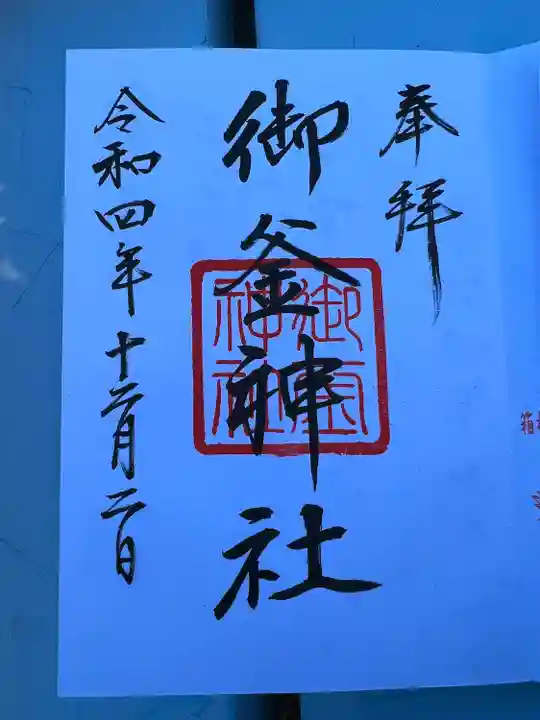 奉拝
御釜神社
御釜神社
令和四年十二月二日
箱